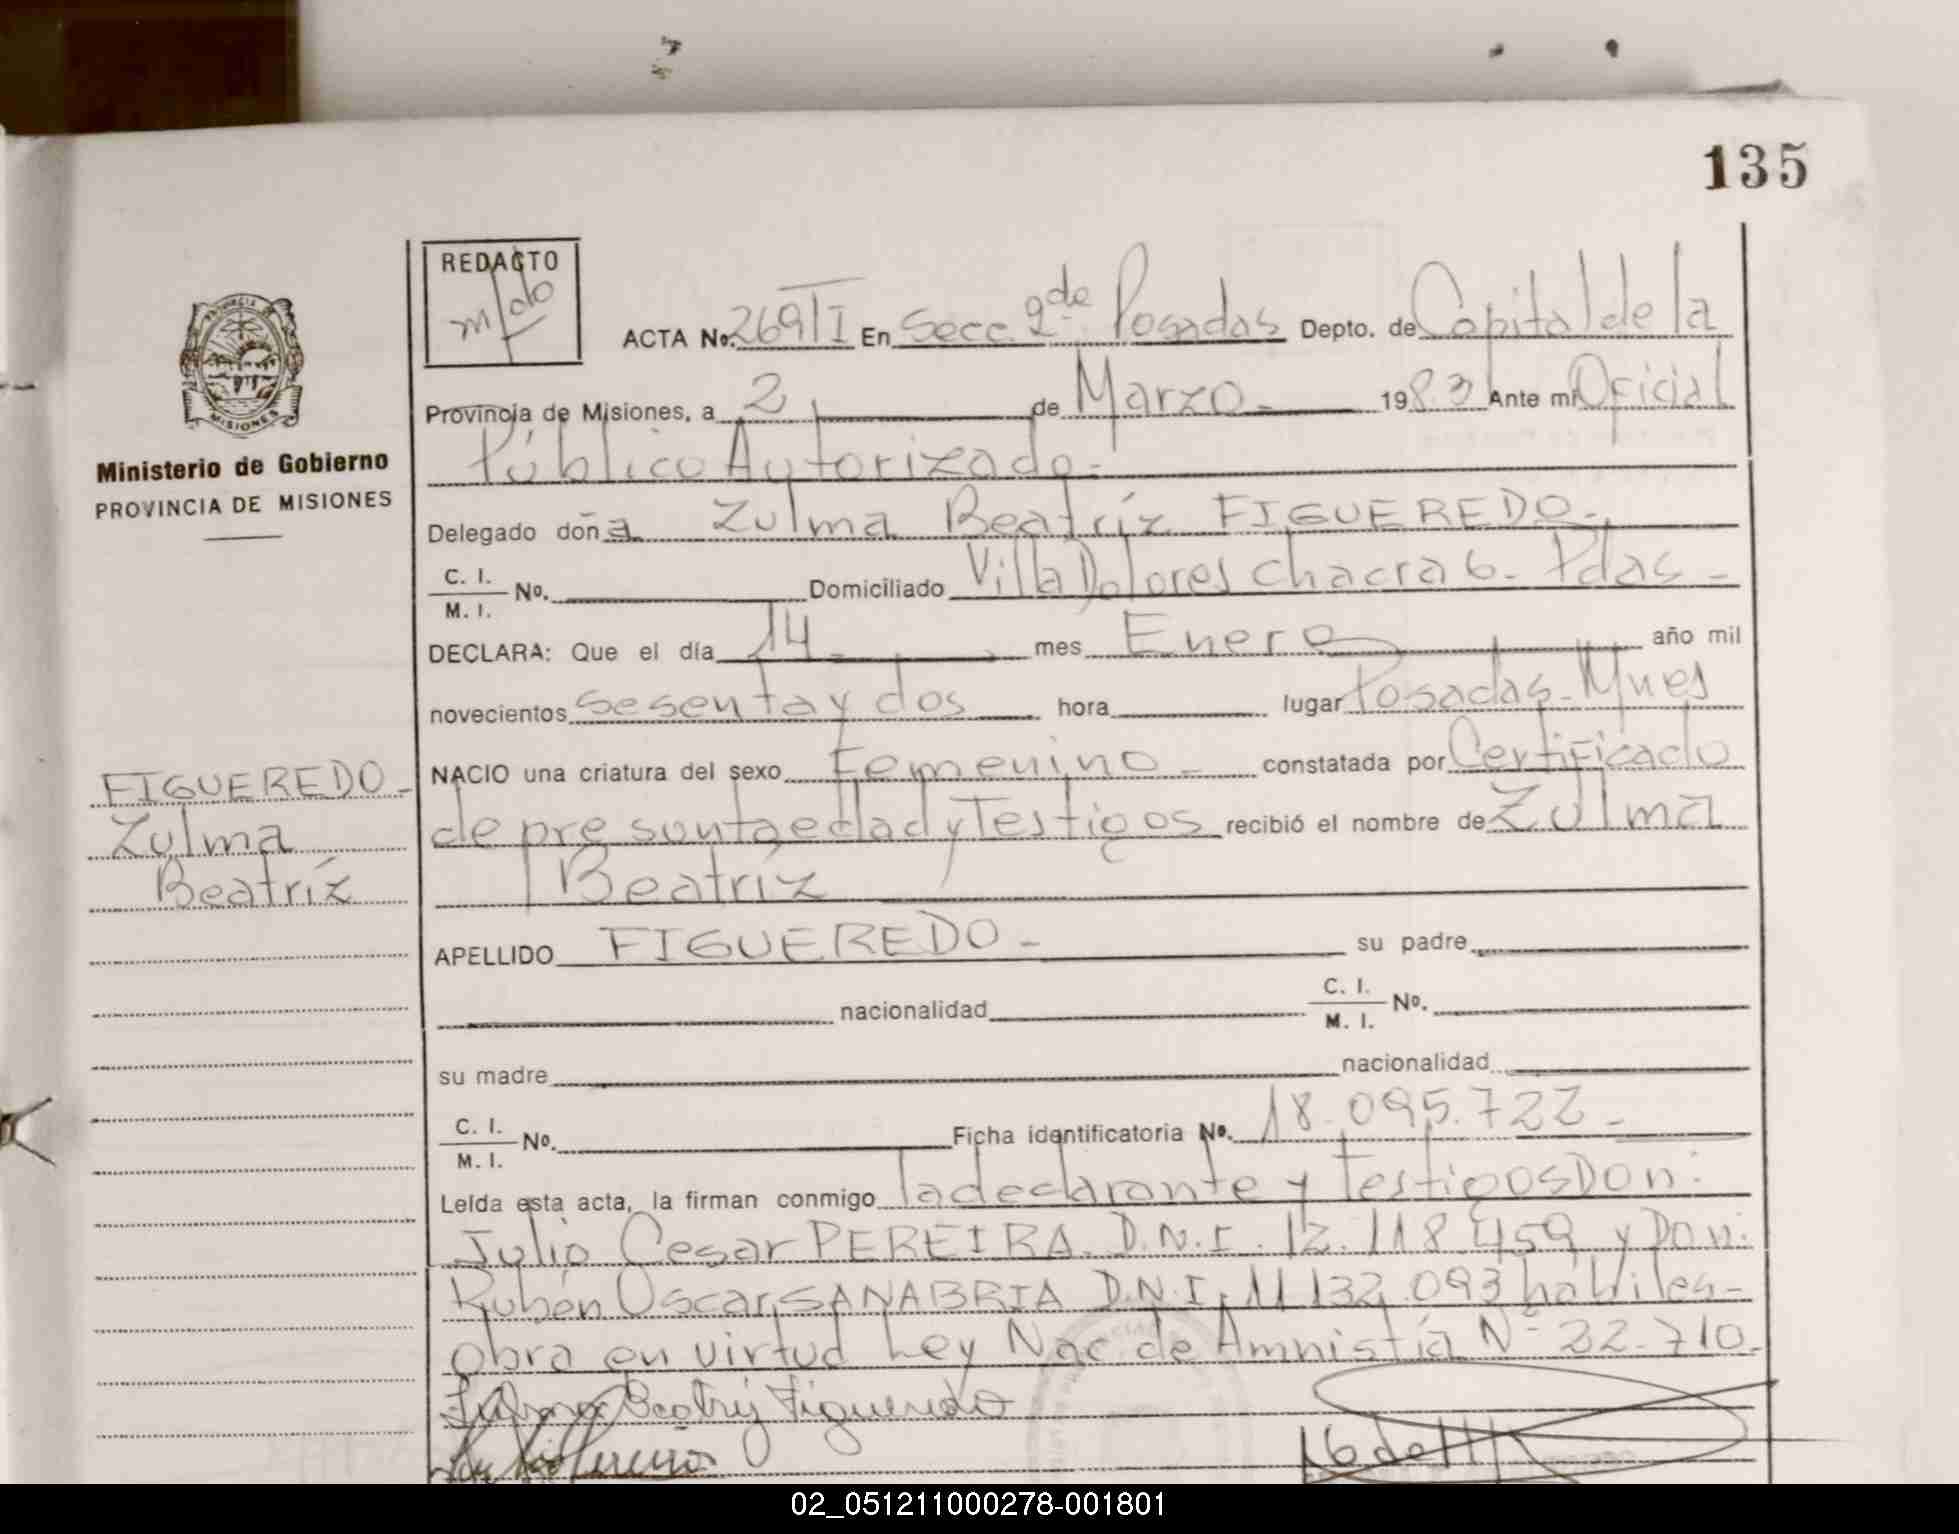 135
REDACTO
ACTA No. 269 T I En Secc. 2da Posadas Depto. de Capital de la
Provincia de Misiones, a 2 de Marzo - 1983 Ante mi Oficial
Público Autorizado.-
MISIONES
Ministerio de Gobierno
PROVINCIA DE MISIONES
Delegado doña Zulma Beatríz FIGUEREDO.-
C. I.
M. I. No. Domiciliado Villa Dolores chacra 6- Pdas -
DECLARA: Que el día 14 - mes Enero año mil
novecientos sesenta y dos hora lugar Posadas- Mnes
NACIO una criatura del sexo Femenino - constatada por Certificado
de presunta edad y Testigos recibió el nombre de Zulma
Beatríz
FIGUEREDO -
Zulma
Beatríz
APELLIDO FIGUEREDO - su padre
nacionalidad C. I.
M. I. No.
su madre nacionalidad
C. I.
M. I. No. Ficha identificatoria No. 18.095.722 -
Leída esta acta, la firman conmigo la declarante y Testigos Don:
Julio Cesar PEREIRA. D.N.I. 12.118.459 y Don:
Rubén Oscar SANABRIA D.N.I. 11.132.093 hábiles-
obra en virtud Ley Nac. de Amnistía Nº 22.710.
Zulma Beatriz Figueredo
02_051211000278-001801